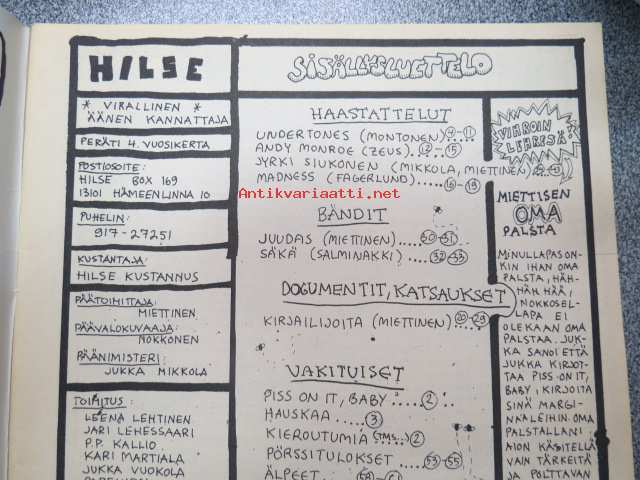 HILSE
* VIRALLINEN *
ÄÄNEN KANNATTAJA
PERÄTI 4. VUOSIKERTA
POSTIOSOITE:
HILSE BOX 169
13101 HÄMEENLINNA 10
PUHELIN:
917-27251
KUSTANTAJA:
HILSE KUSTANNUS
PÄÄTOIMITTAJA:
MIETTINEN
PÄÄVALOKUVAAJA:
NOKKONEN
PÄÄNIMISTERI:
JUKKA MIKKOLA
TOIMITUS:
LEENA LEHTINEN
JARI LEHESSAARI
P.P. KALLIO
KARI MARTIALA
JUKKA VUOKOLA
SISÄLLYSLUETTELO
HAASTATTELUT
UNDERTONES (MONTONEN) 9-11
ANDY MONROE (ZEUS) 12-15
JYRKI SIUKONEN (MIKKOLA, MIETTINEN)
MADNESS (FAGERLUND) ..... 16-18
Antikvariaatti.net
BÄNDIT
JUUDAS (MIETTINEN) .... 30-31
SÄKÄ (SALMINAKKI) ..... 32-33
DOCUMENTIT, KATSAUKSET
KIRJAILIJOITA (MIETTINEN) .. 20-29
VAKITUISET
PISS ON IT, BABY ..... 2
HAUSKAA ..... 3
KIEROUTUMIA (TMS.) 2
PÖRSSITULOKSET .... 53-55
ÄLPEET
VIHROIN
LEHDESSÄ
MIETTISEN
OMA
PALSTA
MINULLAPAS ON-
KIN IHAN OMA
PALSTA, HÄH-
HÄH HÄÄ,
NOKKOSEL-
LAPA EI
OLEKAAN OMA
PALSTAA. JUK-
KA SANOI ETTÄ
JUKKA KIRJOT-
TAA PISS ON IT,
BABY, KIRJOITA
SINÄ MARGI-
NAALEIHIN. OMA
PALSTALLANI
AION KÄSITELLÄ
VAIN TÄRKEITÄ
JA POLTTAVAN